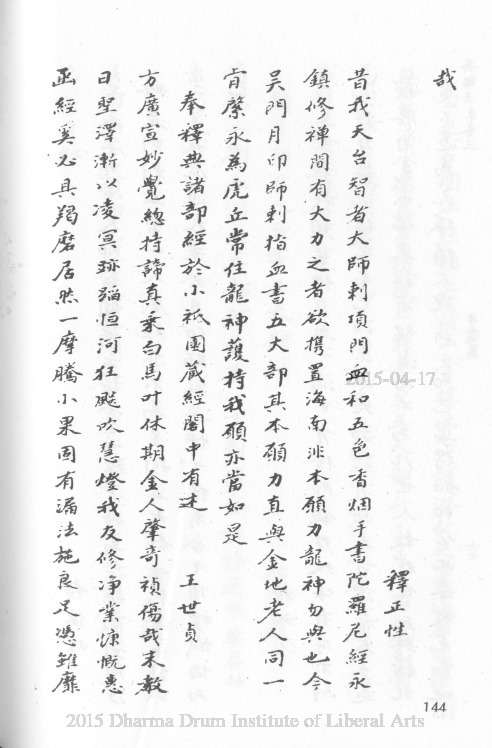 哉
釋正性
昔我天台智者大師刺頂門血和五色香烟手書陀羅尼經永
鎮修禪間有大力之者欲携置海南非本願力龍神勿與也今
吳門月印師刺指血書五大部其本願力直與金地老人同一
肯綮永為虎丘常住龍神護持我願亦當如是
奉釋典諸部經於小祇園藏經閣中有述 王世貞
方廣宣妙覺總持諦真乘白馬叶休期金人肇奇禎傷哉末教
日聖澤漸以凌冥跡蹈恒河狂飈吹慧燈我友修净業慷慨惠
函經奚必具羯磨居然一摩騰小果固有漏法施良足憑雖靡
2015-04-17
144
2015 Dharma Drum Institute of Liberal Arts